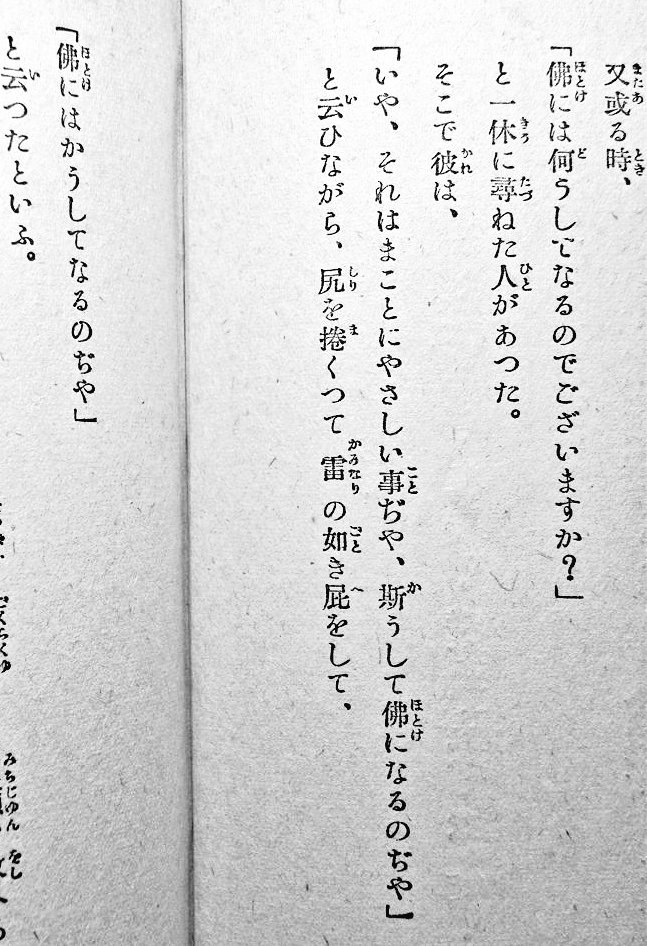 又或る時、
「佛には何うしてなるのでございますか？」
と一休に尋ねた人があつた。
そこで彼は、
「いや、それはまことにやさしい事ぢや、斯うして佛になるのぢや」
と云ひながら、尻を捲くつて雷の如き屁をして、
「佛にはかうしてなるのぢや」
と云つたといふ。